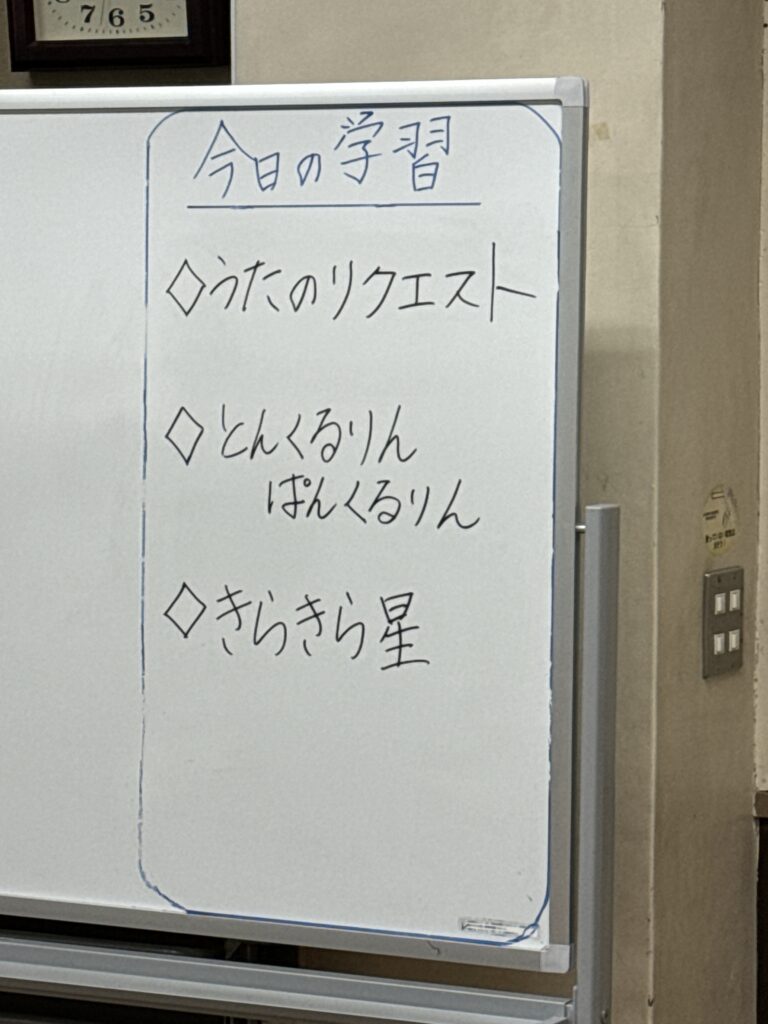 7 6 5
今日の学習
◇うたのリクエスト
◇とんくるりん
ぱんくるりん
◇きらきら星